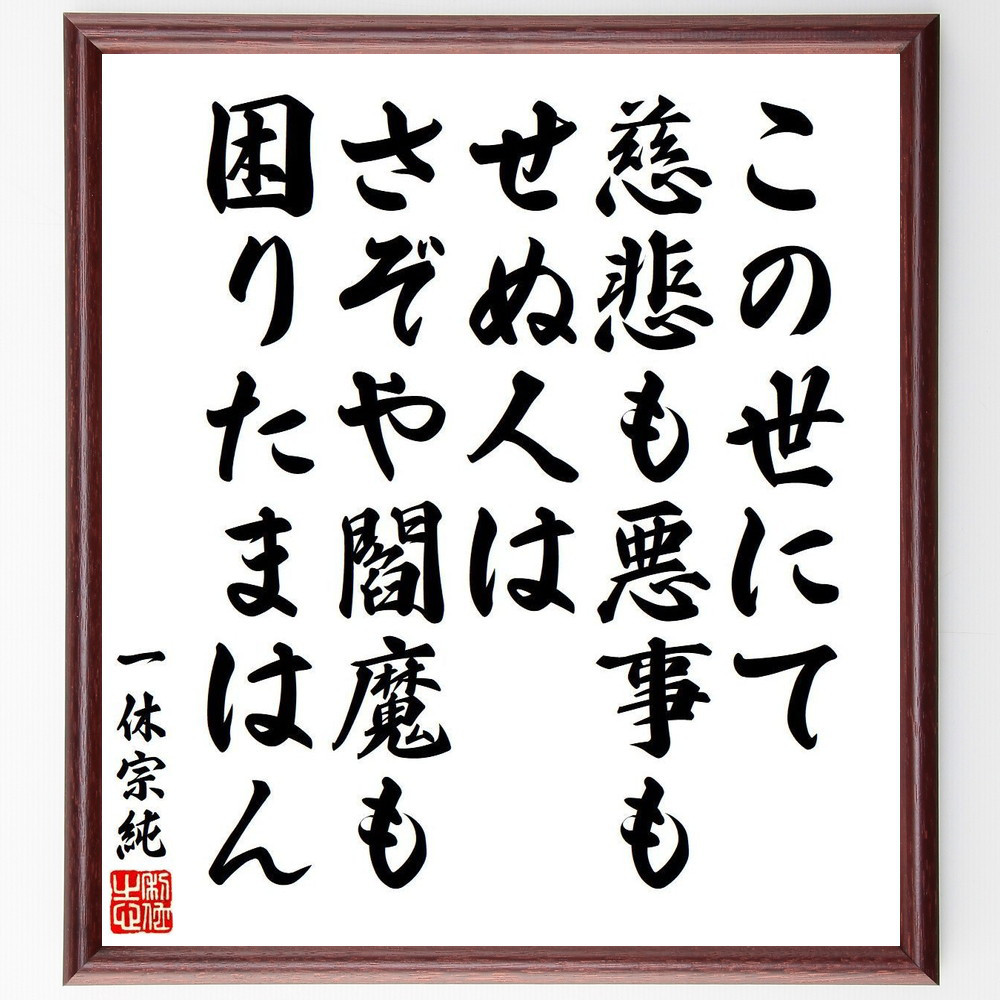 この世にて
慈悲も悪事も
せぬ人は
さぞや閻魔も
困りたまはん
一休宗純